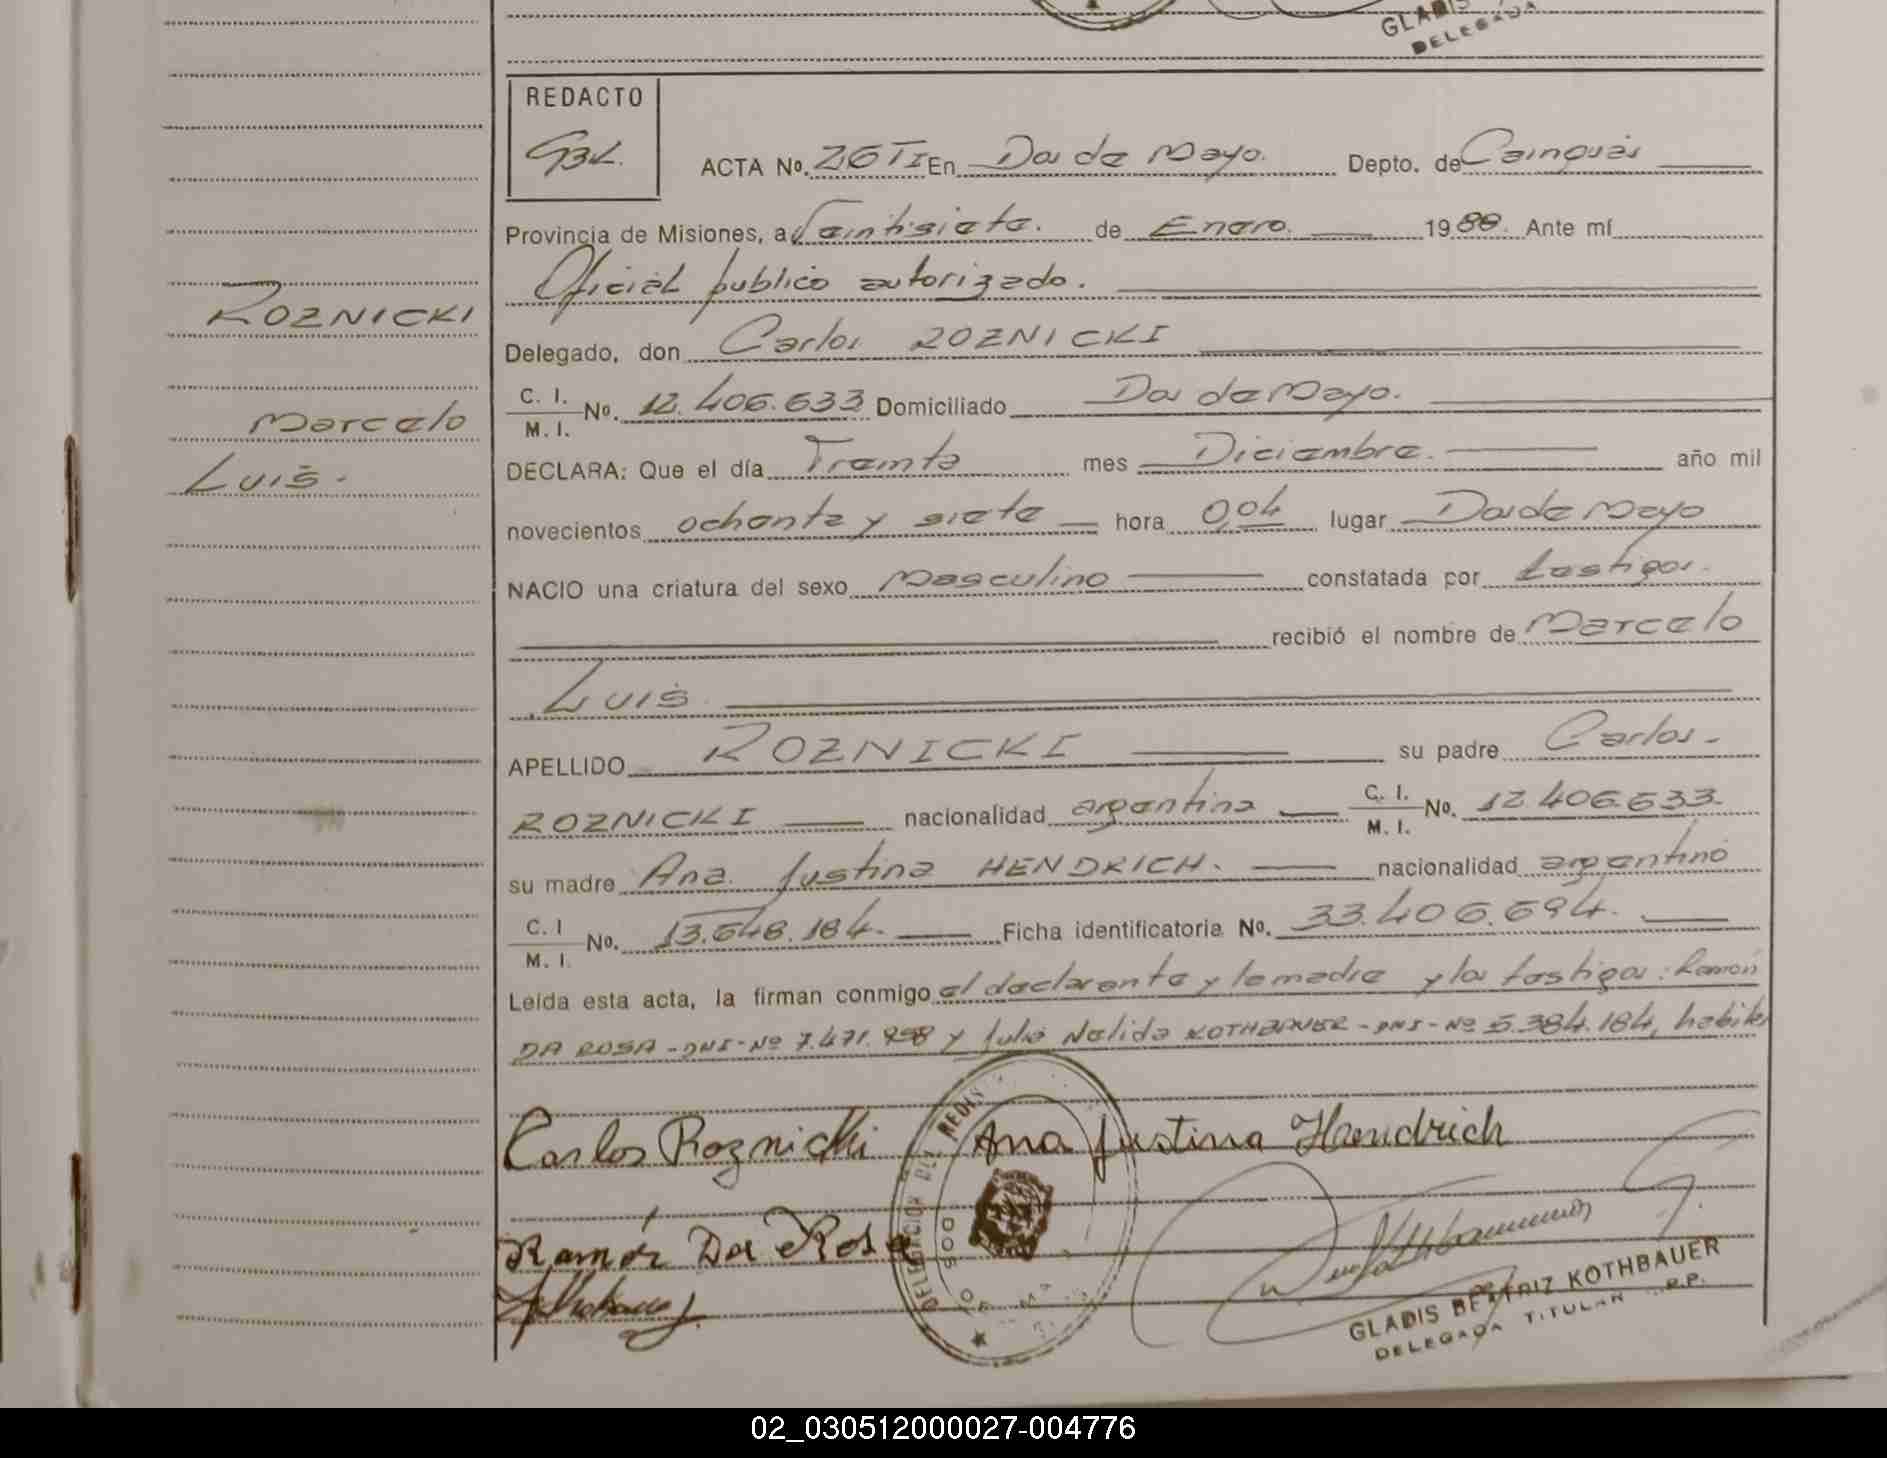 GLADIS
DELEGADA
REDACTO
GBK.
ACTA No. 26 TI En Dos de Mayo. Depto. de Cainguás
Provincia de Misiones, a Veintisiete. de Enero. 1988. Ante mí
Oficial publico autorizado.
ROZNICKI
Delegado, don Carlos ROZNICKI
C. I.
M. I. No. 12.406.633 Domiciliado Dos de Mayo.
Marcelo
Luis.
DECLARA: Que el día Treinta mes Diciembre. año mil
novecientos ochenta y siete hora 0,04 lugar Dos de Mayo
NACIO una criatura del sexo Masculino constatada por testigos.
recibió el nombre de Marcelo
Luis
APELLIDO ROZNICKI su padre Carlos
ROZNICKI nacionalidad argentina C. I. M. I. No. 12.406.633.
su madre Ana Justina HENDRICH. nacionalidad argentino
C. I
M. I. No. 13.648.184. Ficha identificatoria No. 33.406.694.
Leída esta acta, la firman conmigo el declarante y la madre y los testigos: Ramón
DA ROSA - DNI - No 7.471.958 y Julia Nelida KOTHBAUER - DNI - No 5.384.184, habiles
Carlos Roznicki Ana Justina Hendrich
Ramón Da Rosa
DELEGACION DEL REGIS
DOS DE MAYO
GLADIS BEATRIZ KOTHBAUER
DELEGADA TITULAR R.P.
02_030512000027-004776